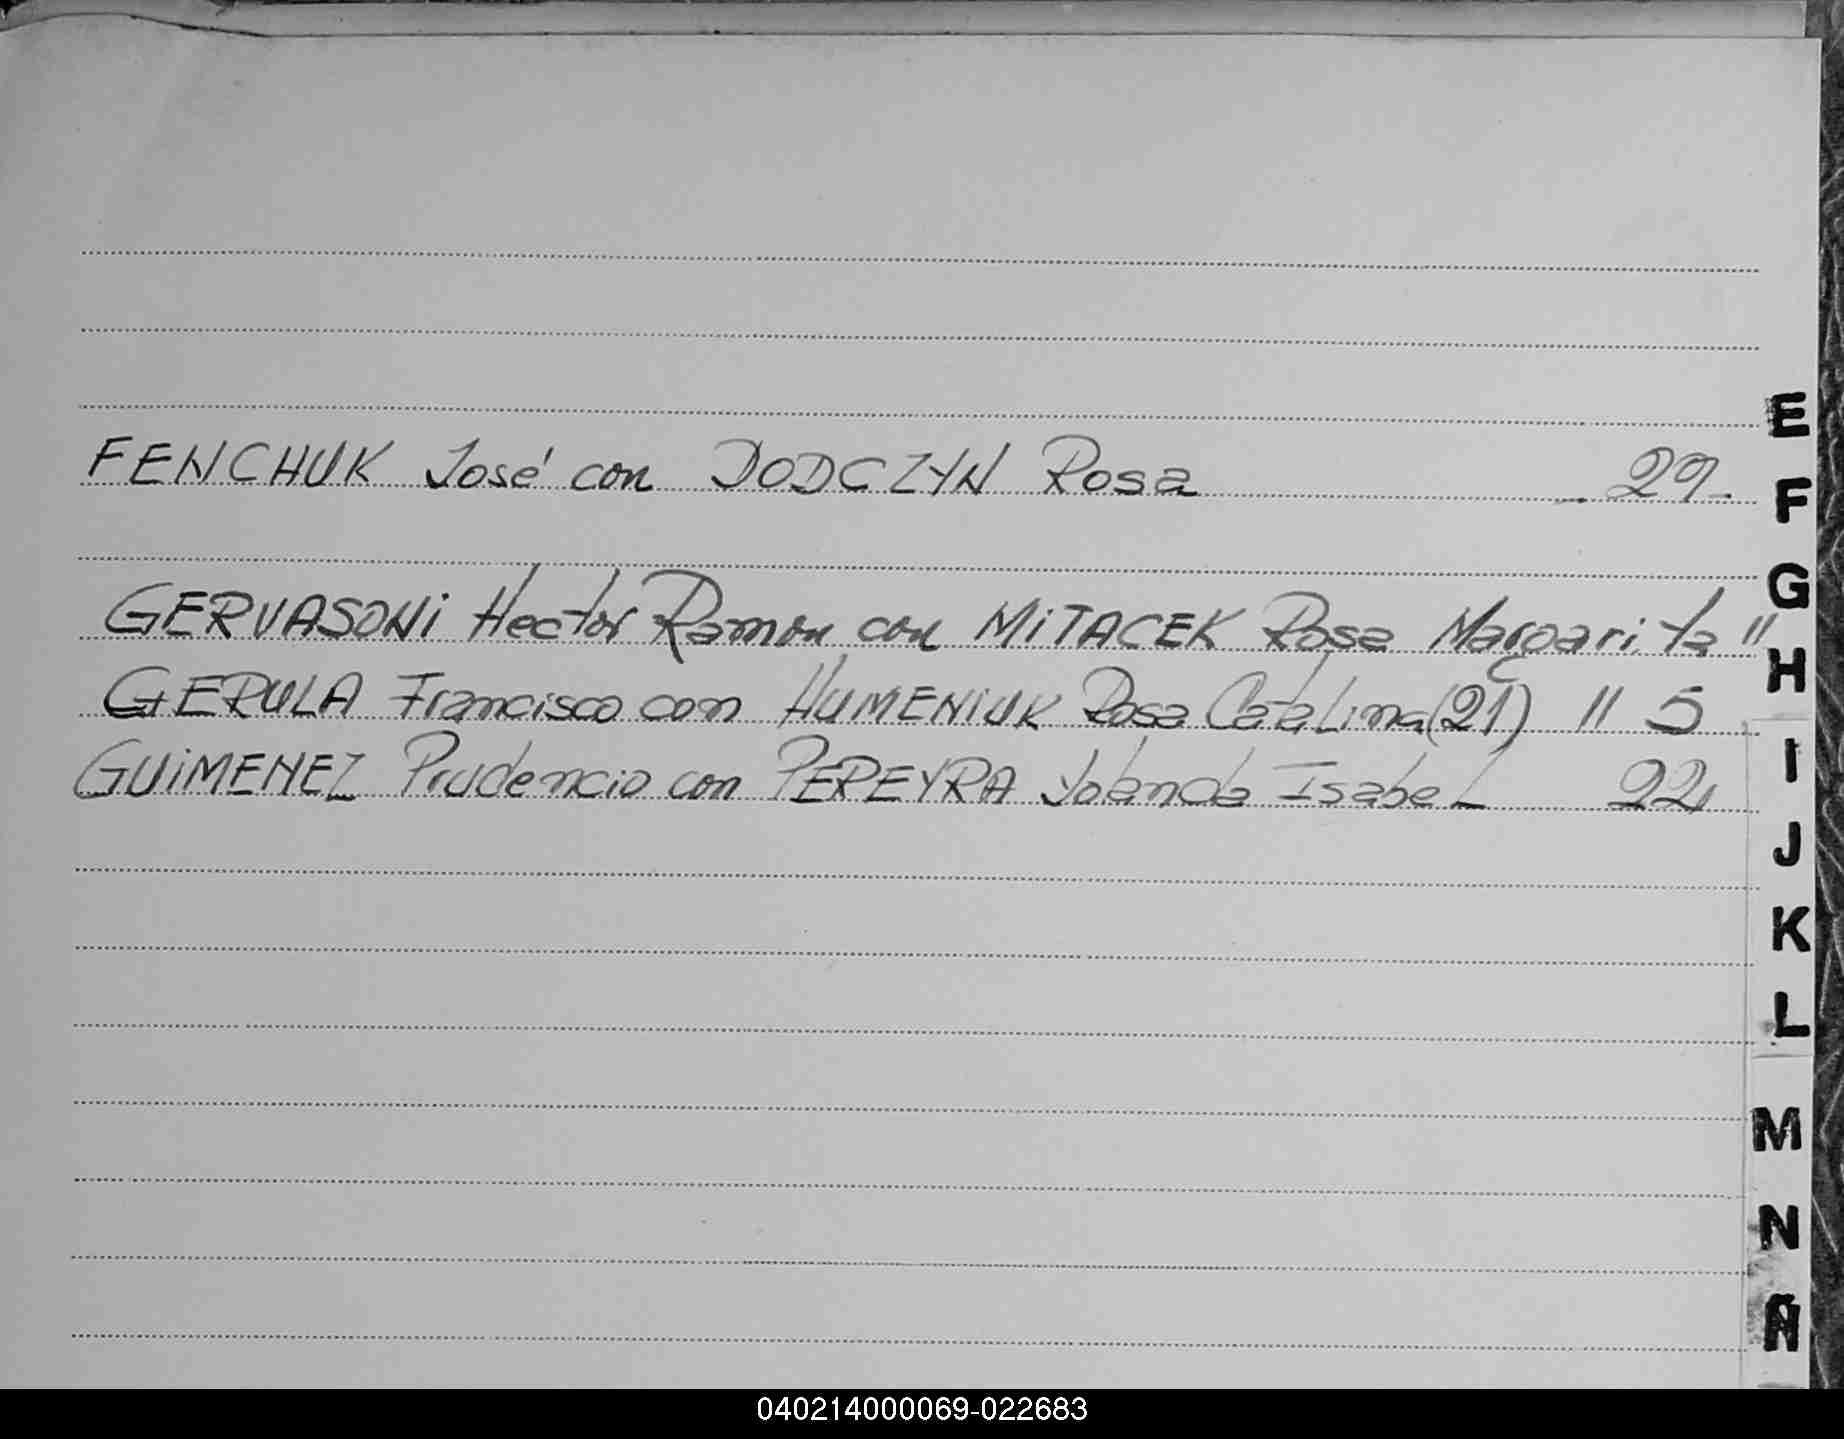 FENCHUK José con DODCZYN Rosa 29.
GERVASONi Hector Ramon con MiTACEK Rosa Margarita "
GERULA Francisco con HUMENiUK Rosa Catalina (21) " 5
GUiMENEZ Prudencio con PEREYRA Yolanda Isabel 22
E
F
G
H
I
J
K
L
M
N
Ñ
040214000069-022683